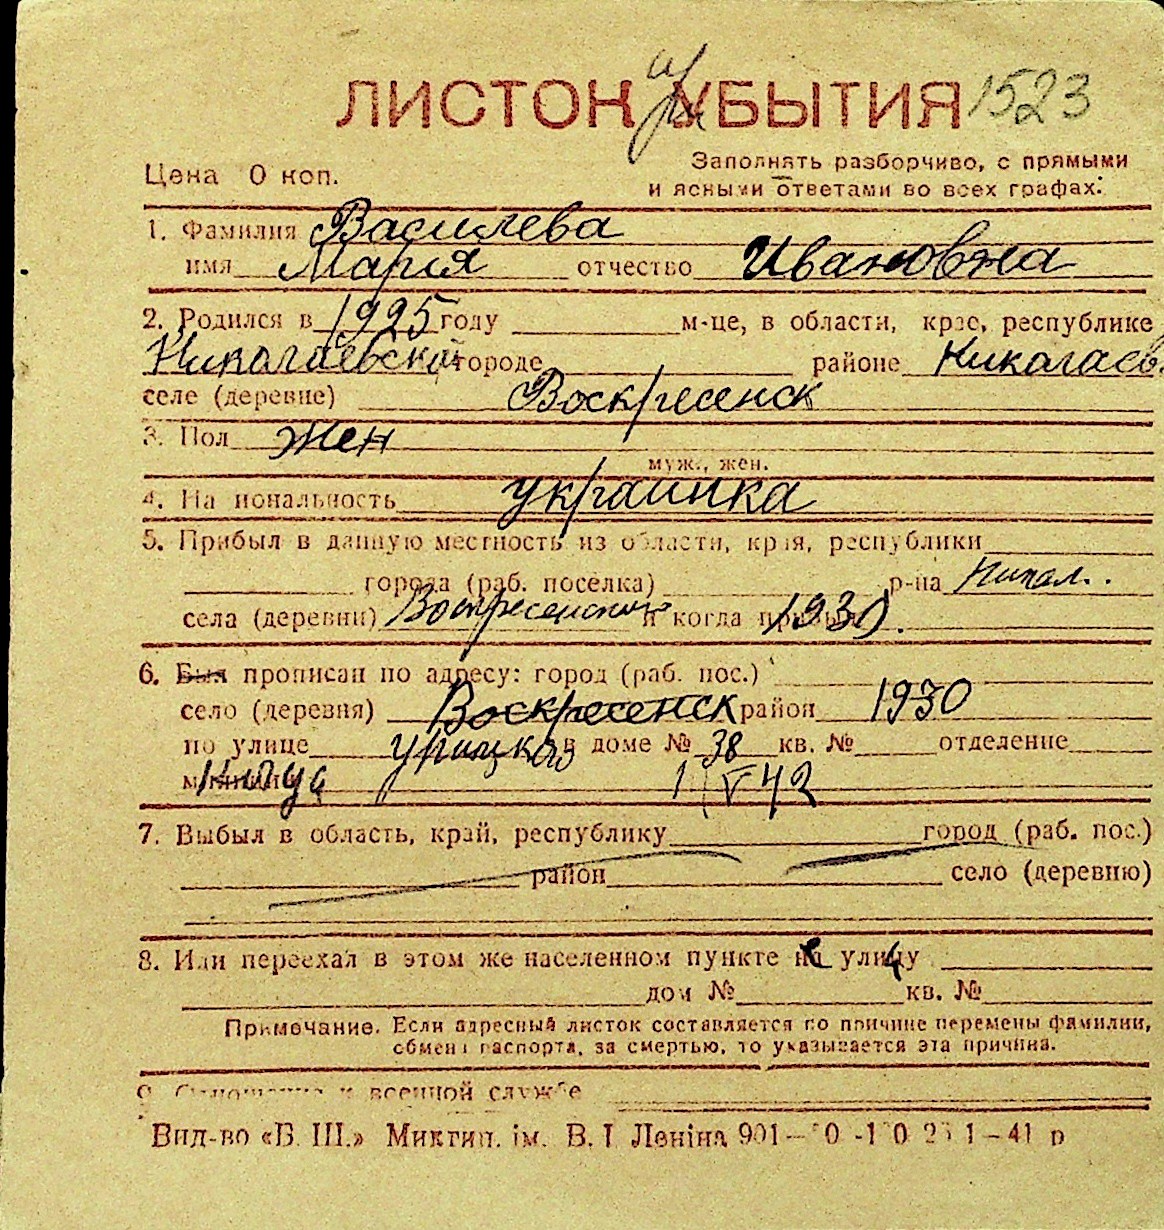 ЛИСТОК УБЫТИЯ 1523
Цена 0 коп.
Заполнять разборчиво, с прямыми
и ясными ответами во всех графах.
1. Фамилия Василева
имя Марія отчество Ивановна
2. Родился в 1925 году м-це, в области, крае, республике
Николаевской городе районе Николаев.
селе (деревне) Воскресенск
3. Пол жен
муж., жен.
4. На иональность украинка
5. Прибыл в данную местность из области, края, республики
города (раб. поселка) р-на Никол..
села (деревни) Воскресенского и когда прибыл 1930.
6. Был прописан по адресу: город (раб. пос.)
село (деревня) Воскресенск район 1930
по улице Урицкого в доме № 38 кв. № отделение
милиции V 42
7. Выбыл в область, край, республику город (раб. пос.)
район село (деревню)
8. Или переехал в этом же населенном пункте на улицу
дом № кв. №
Примечание. Если адресный листок составляется по причине перемены фамилии,
обмена паспорта, за смертью, то указывается эта причина.
9. Отношение к военной службе
Вид-во «Б. Ш.» Миктип. ім. В. І Леніна 901— 41 р